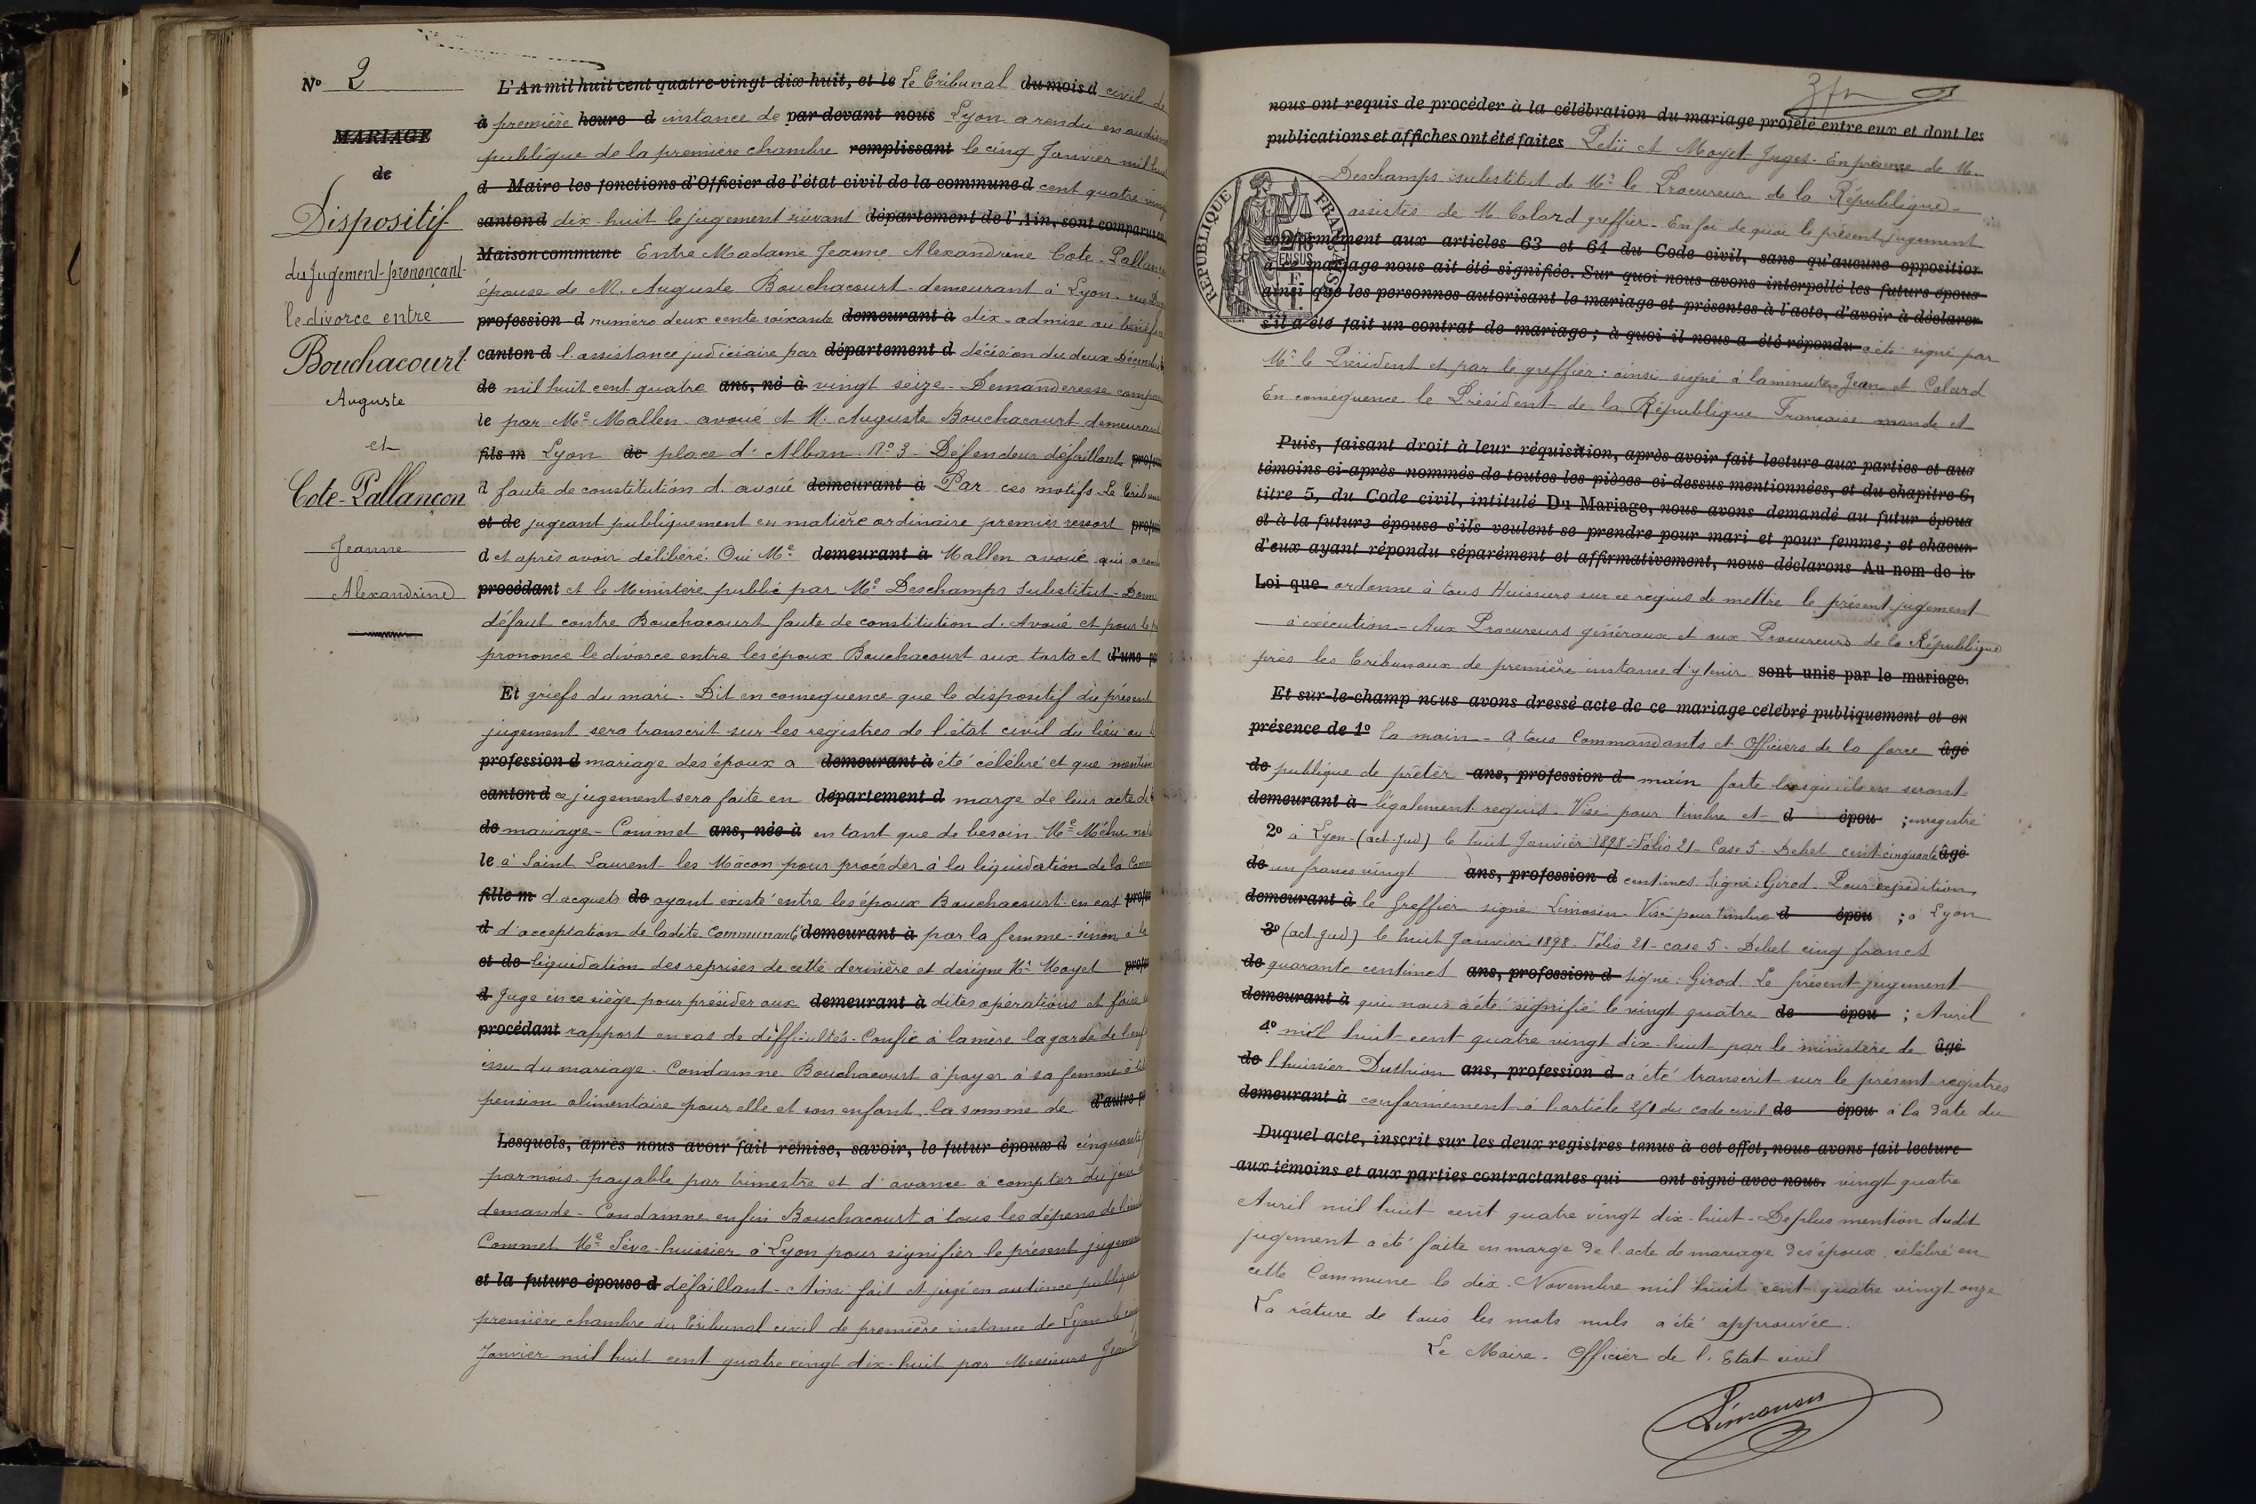 Nº 2
MARIAGE
de
Dispositif
du Jugement prononçant
le divorce entre
Bouchacourt
Auguste
et
Cote-Pallançon
Jeanne
Alexandrine
L'An mil huit cent quatre-vingt dix-huit, et le Le Tribunal du mois d civil de
à première heure d instance de par devant nous Lyon a rendu en audience
publique de la première chambre remplissant le cinq Janvier mil huit
d Maire les fonctions d'Officier de l'état civil de la commune d cent quatre ving
canton d dix-huit le jugement suivant département de l'Ain, sont comparus en
Maison commune Entre Madame Jeanne Alexandrine Cote-Pallan
épouse de M. Auguste Bouchacourt demeurant à Lyon, rue
profession d numéro deux cente soixante demeurant à dix-admise au bénéfi
canton d l'assistance judiciaire par département d décision du deux Décemb
de mil huit cent quatre ans, né à vingt seize - Demanderesse compa
le par Me Mallen avoué et M. Auguste Bouchacourt demeurant
fils m Lyon de place d'Alban Nº 3 - Défendeur défaillant profes
d faute de constitution d'avoué demeurant à Par ces motifs - Le Tribun
et de jugeant publiquement en matière ordinaire premier ressort profes
d et après avoir délibéré. Oui Me demeurant à Mallen avoué qui a
procédant et le Ministère public par Me Deschamps Substitut - Donne
défaut contre Bouchacourt faute de constitution d'Avoué et pour le
prononce le divorce entre les époux Bouchacourt aux torts et d'une pa
Et griefs du mari - Dit en conséquence que le dispositif du présent
jugement sera transcrit sur les registres de l'état civil du lieu où
profession d mariage des époux a demeurant à été célébré et que mention
canton d ce jugement sera faite en département d marge de leur acte de
de mariage - Commet ans, née à en tant que de besoin Me Méhu no
le à Saint Laurent-les-Mâcon pour procéder à la liquidation de la Comm
fille m d'acquets de ayant existé entre les époux Bouchacourt en cas profes
d d'acceptation de ladite Communauté demeurant à par la femme - sinon à la
et de liquidation des reprises de cette dernière et désigne Mr Mayet profes
d Juge en ce siège pour présider aux demeurant à dites opérations et faire
procédant rapport en cas de difficultés - Confie à la mère la garde de l'enf
issu du mariage - Condamne Bouchacourt à payer à sa femme à ti
pension alimentaire pour elle et son enfant, la somme de d'autre p
Lesquels, après nous avoir fait remise, savoir, le futur époux d cinquante
par mois payable par trimestre et d'avance à compter du jour
demande - Condamne enfin Bouchacourt à tous les dépens de l'
Commet Me Sève huissier à Lyon pour signifier le présent jugemen
et la future épouse d défaillant - Ainsi fait et jugé en audience publique
première chambre du Tribunal civil de première instance de Lyon le
Janvier mil huit cent quatre vingt dix-huit par Messieurs Jean
nous ont requis de procéder à la célébration du mariage projeté entre eux et dont les
publications et affiches ont été faites Petii et Mayet Juges. En présence de M.
Deschamps substitut de Mr le Procureur de la République
assistés de M. Colard greffier - En foi de quoi le présent jugement
RÉPUBLIQUE FRANÇAISE
2/10
EN SUS
conformément aux articles 63 et 64 du Code civil, sans qu'aucune opposition
à ce mariage nous ait été signifiée. Sur quoi nous avons interpellé les futurs époux
ainsi que les personnes autorisant le mariage et présentes à l'acte, d'avoir à déclarer
s'il a été fait un contrat de mariage ; à quoi il nous a été répondu a été signé par
Mr le Président et par le greffier : ainsi signé à la minute Jean et Colard
En conséquence le Président de la République Française mande et
Puis, faisant droit à leur réquisition, après avoir fait lecture aux parties et aux
témoins ci-après nommés de toutes les pièces ci-dessus mentionnées, et du chapitre 6,
titre 5, du Code civil, intitulé Du Mariage, nous avons demandé au futur époux
et à la future épouse s'ils veulent se prendre pour mari et pour femme ; et chacun
d'eux ayant répondu séparément et affirmativement, nous déclarons Au nom de la
Loi que ordonne à tous Huissiers sur ce requis de mettre le présent jugement
à exécution - Aux Procureurs généraux et aux Procureurs de la République
près les Tribunaux de première instance d'y tenir sont unis par le mariage.
Et sur-le-champ nous avons dressé acte de ce mariage célébré publiquement et en
présence de 1º la main - A tous Commandants et Officiers de la force âgé
de publique de prêter ans, profession d main forte lorsqu'ils en seront
demeurant à légalement requis. Visé pour timbre et d épou ; enregistré
2º à Lyon (act. jud) le huit Janvier 1898 - Folio 21 - Case 5 - Debet cent cinquante âgé
de un francs vingt ans, profession d centimes signé : Girod - Pour expédition,
demeurant à le Greffier signé Limosin - Visé pour timbre d épou ; à Lyon
3º (act. jud) le huit Janvier 1898 - Folio 21 - case 5 - Debet cinq francs
de quarante centimes ans, profession d signé : Girod. Le présent jugement
demeurant à qui nous a été signifié le vingt quatre de épou ; Avril
4º mil huit cent quatre vingt dix-huit par le ministère de âgé
de l'huissier Duthion ans, profession d a été transcrit sur le présent registres
demeurant à conformément à l'article 251 du code civil de épou à la date du
Duquel acte, inscrit sur les deux registres tenus à cet effet, nous avons fait lecture
aux témoins et aux parties contractantes qui ont signé avec nous. vingt quatre
Avril mil huit cent quatre vingt dix-huit - De plus mention dudit
jugement a été faite en marge de l'acte de mariage des époux, célébré en
cette Commune le dix Novembre mil huit cent quatre vingt onze
La râture de tous les mots nuls a été approuvée.
Le Maire - Officier de l'Etat civil